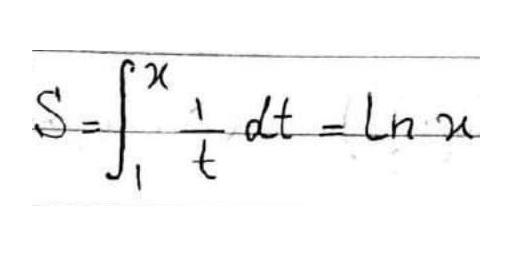 S = ∫₁ˣ 1/t dt = Ln x